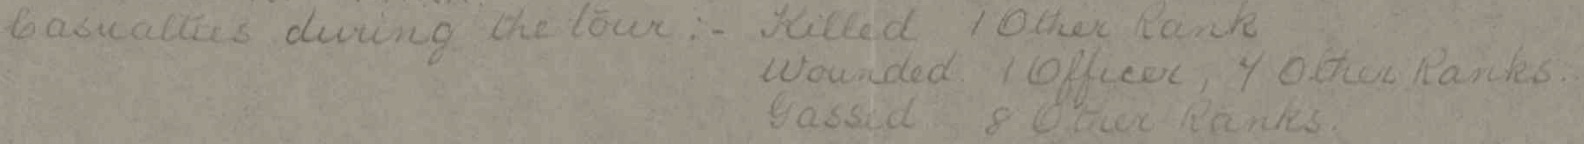 Casualties during the tour :- Killed 1 Other Rank
Wounded. 1 Officer, 7 Other Ranks.
Gassed 8 Other Ranks.